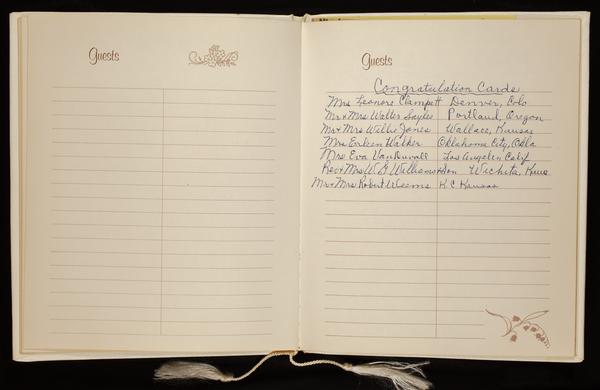 Guests
Guests
Congratulation Cards
Mrs Leonore Clampett Denver, Colo
Mr & Mrs Walter Sayles Portland, Oregon
Mr & Mrs Willie Jones Wallace, Kansas
Mrs Erleen Walker Oklahoma City, Okla
Mrs Eva VanDuvall Los Angeles Calif
Rev & Mrs W. G. Williamson Wichita, Kans
Mr & Mrs Robert Weems K.C. Kansas